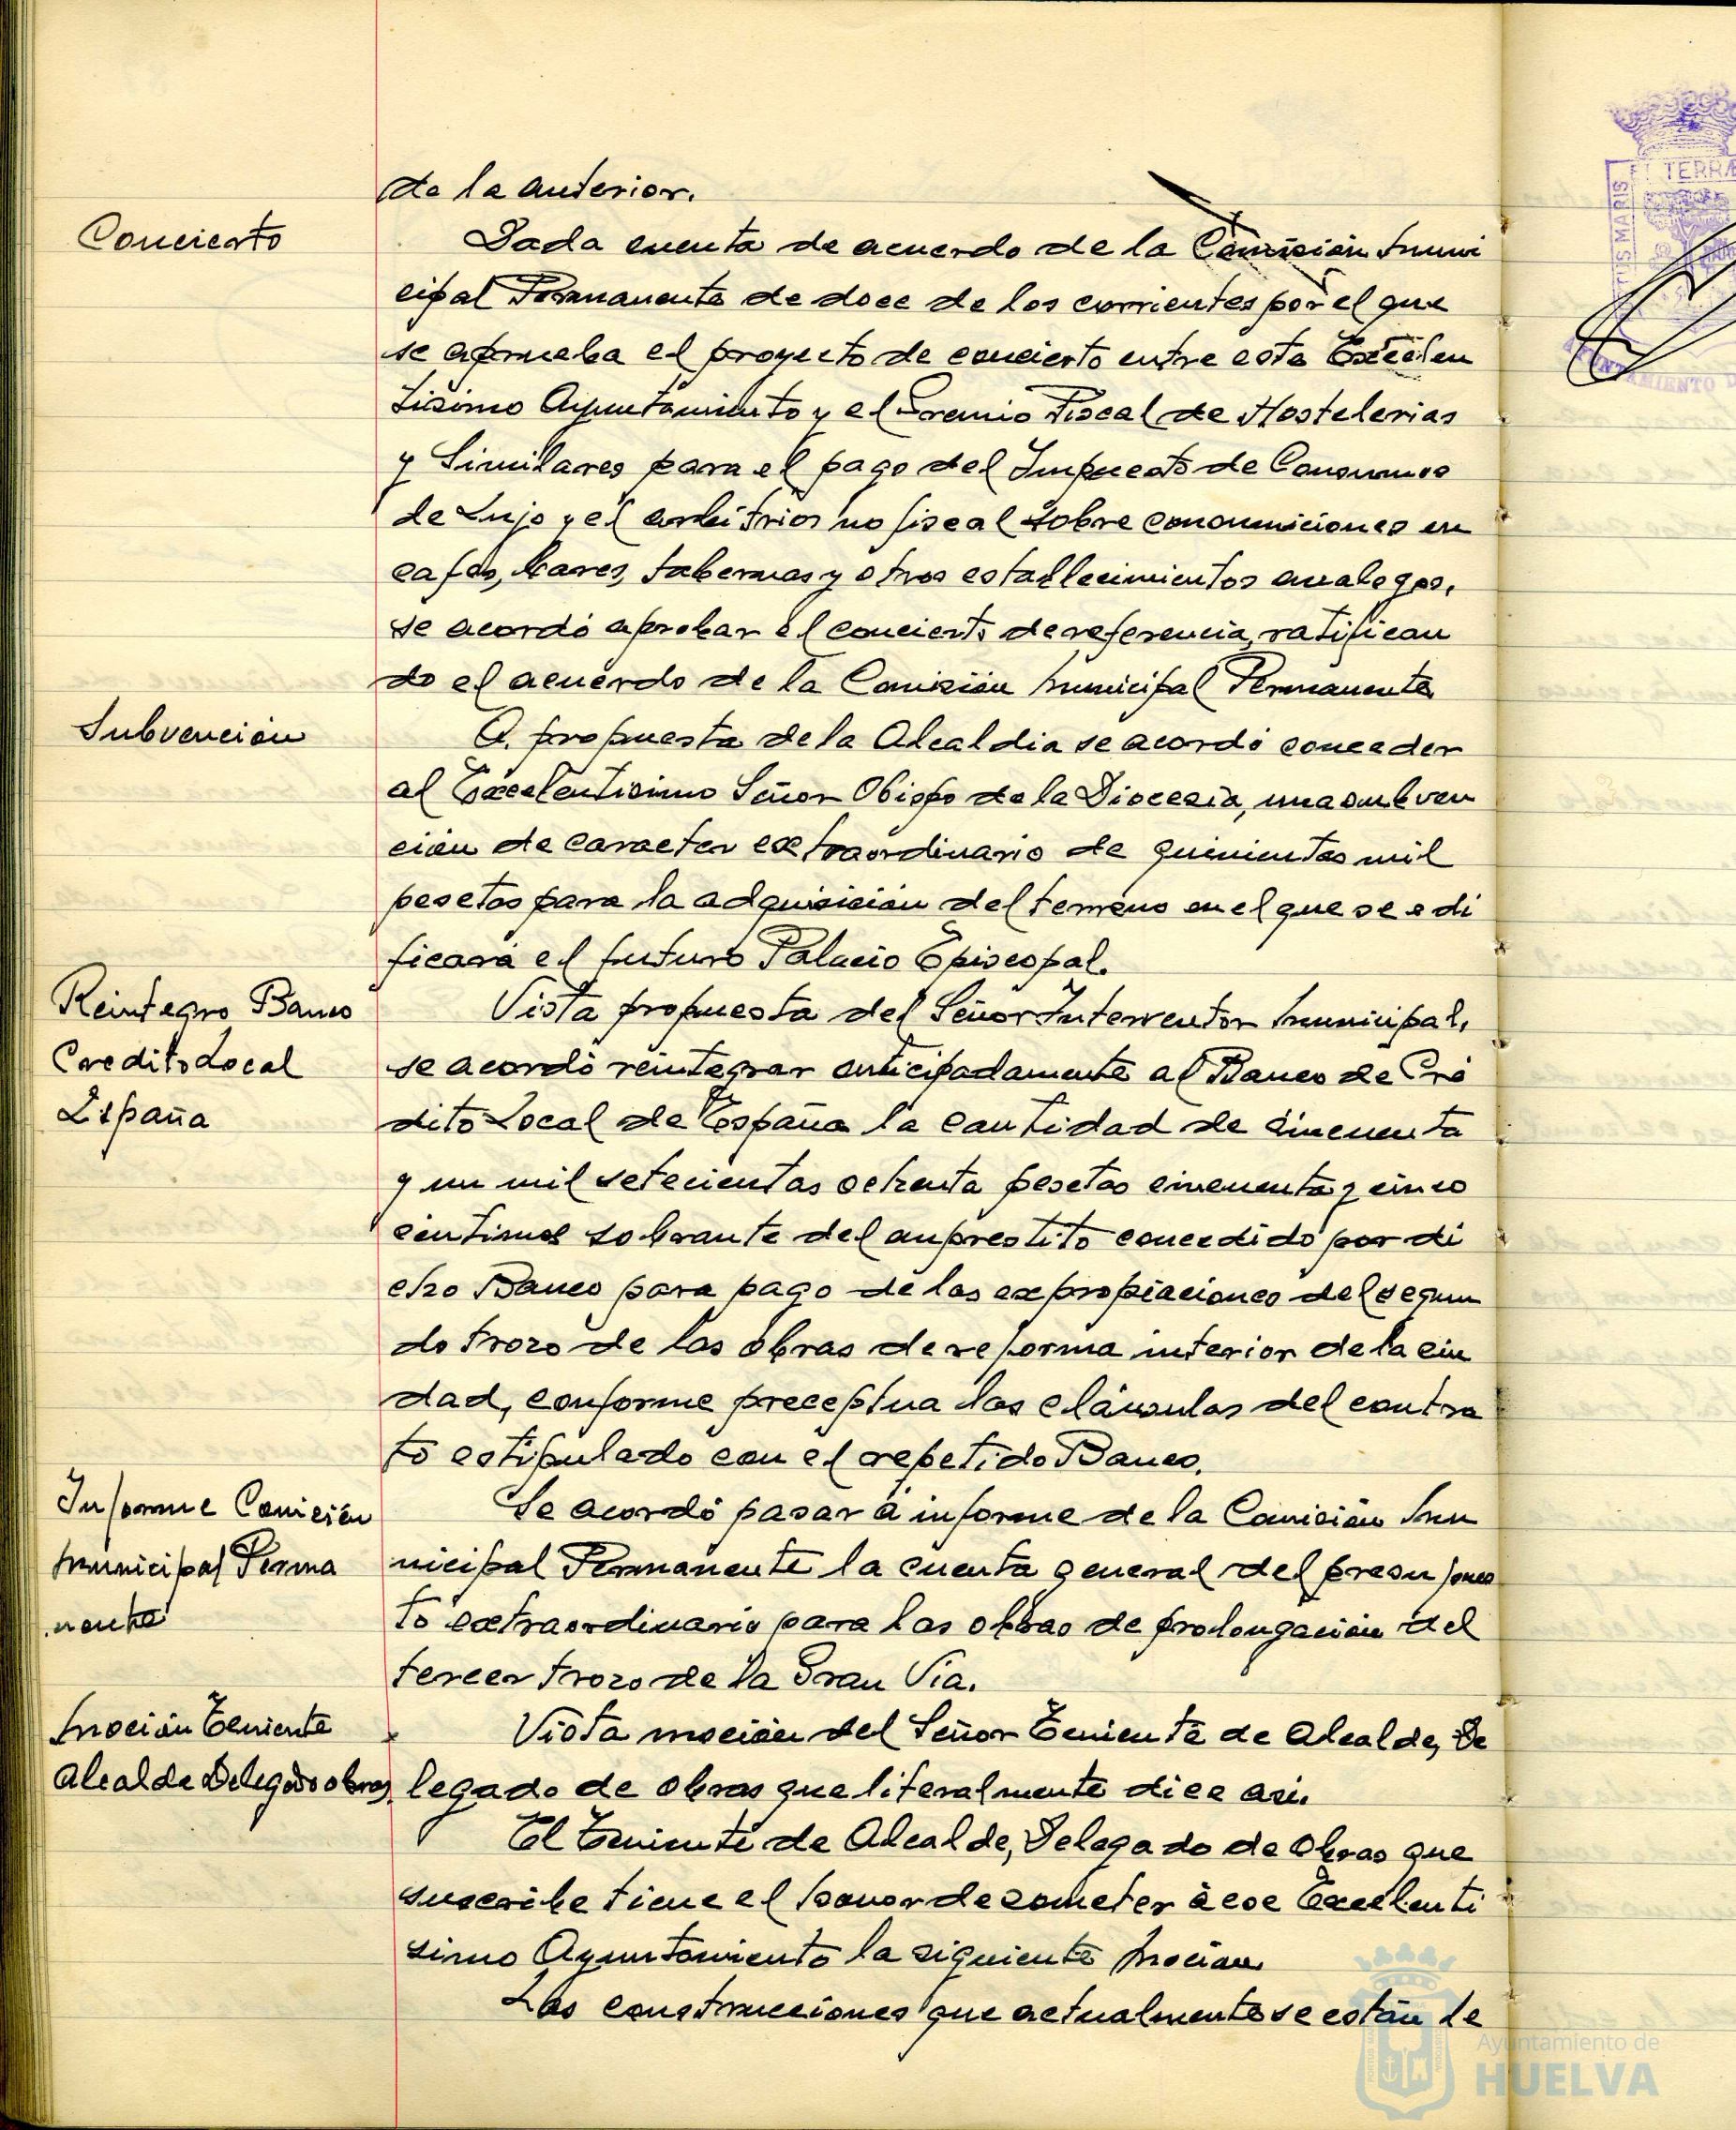 de la anterior.
Concierto
Dada cuenta de acuerdo de la Comisión Muni
cipal Permanente de doce de los corrientes por el que
se aprueba el proyecto de concierto entre este Excelen
tisimo Ayuntamiento y el Gremio Fiscal de Hostelerias
y Similares para el pago del Impuesto de Consumos
de Lujo y el arbitrios no fiscal sobre consumiciones en
cafes, bares, tabernas y otros establecimientos analogos,
se acordó aprobar el concierto de referencia, ratifican
do el acuerdo de la Comisión Municipal Permanente
Subvención
A propuesta de la Alcaldia se acordó conceder
al Excelentisimo Señor Obispo de la Diocesis, una subven
ción de caracter extraordinario de quinientas mil
pesetas para la adquisición del terreno en el que se edi
ficará el futuro Palacio Episcopal.
Reintegro Banco
Credito Local
España
Vista propuesta del Señor Interventor Municipal,
se acordó reintegrar anticipadamente al Banco de Cré
dito Local de España la cantidad de cincuenta
y un mil setecientas ochenta pesetas cincuenta y cinco
centimos sobrante del anprestito concedido por di
cho Banco para pago de las expropiaciones del segun
do trozo de las obras de reforma interior de la ciu
dad, conforme preceptua las cláusulas del contra
to estipulado con el repetido Banco.
Informe Comisión
Municipal Perma
nente
Se acordó pasar á informe de la Comisión Mu
nicipal Permanente la cuenta general del presupues
to extraordinario para las obras de prolongación del
tercer trozo de la Gran Via.
Moción Teniente
Alcalde Delegado obras
Vista moción del Señor Teniente de Alcalde, De
legado de obras que literalmente dice asi.
El Teniente de Alcalde, Delegado de Obras que
suscribe tiene el honor de someter á ese Excelenti
simo Ayuntamiento la siguiente Moción
Las construcciones que actualmente se están le
TERRÆ
US MARIS
AYUNTAMIENTO D
Ayuntamiento de
HUELVA